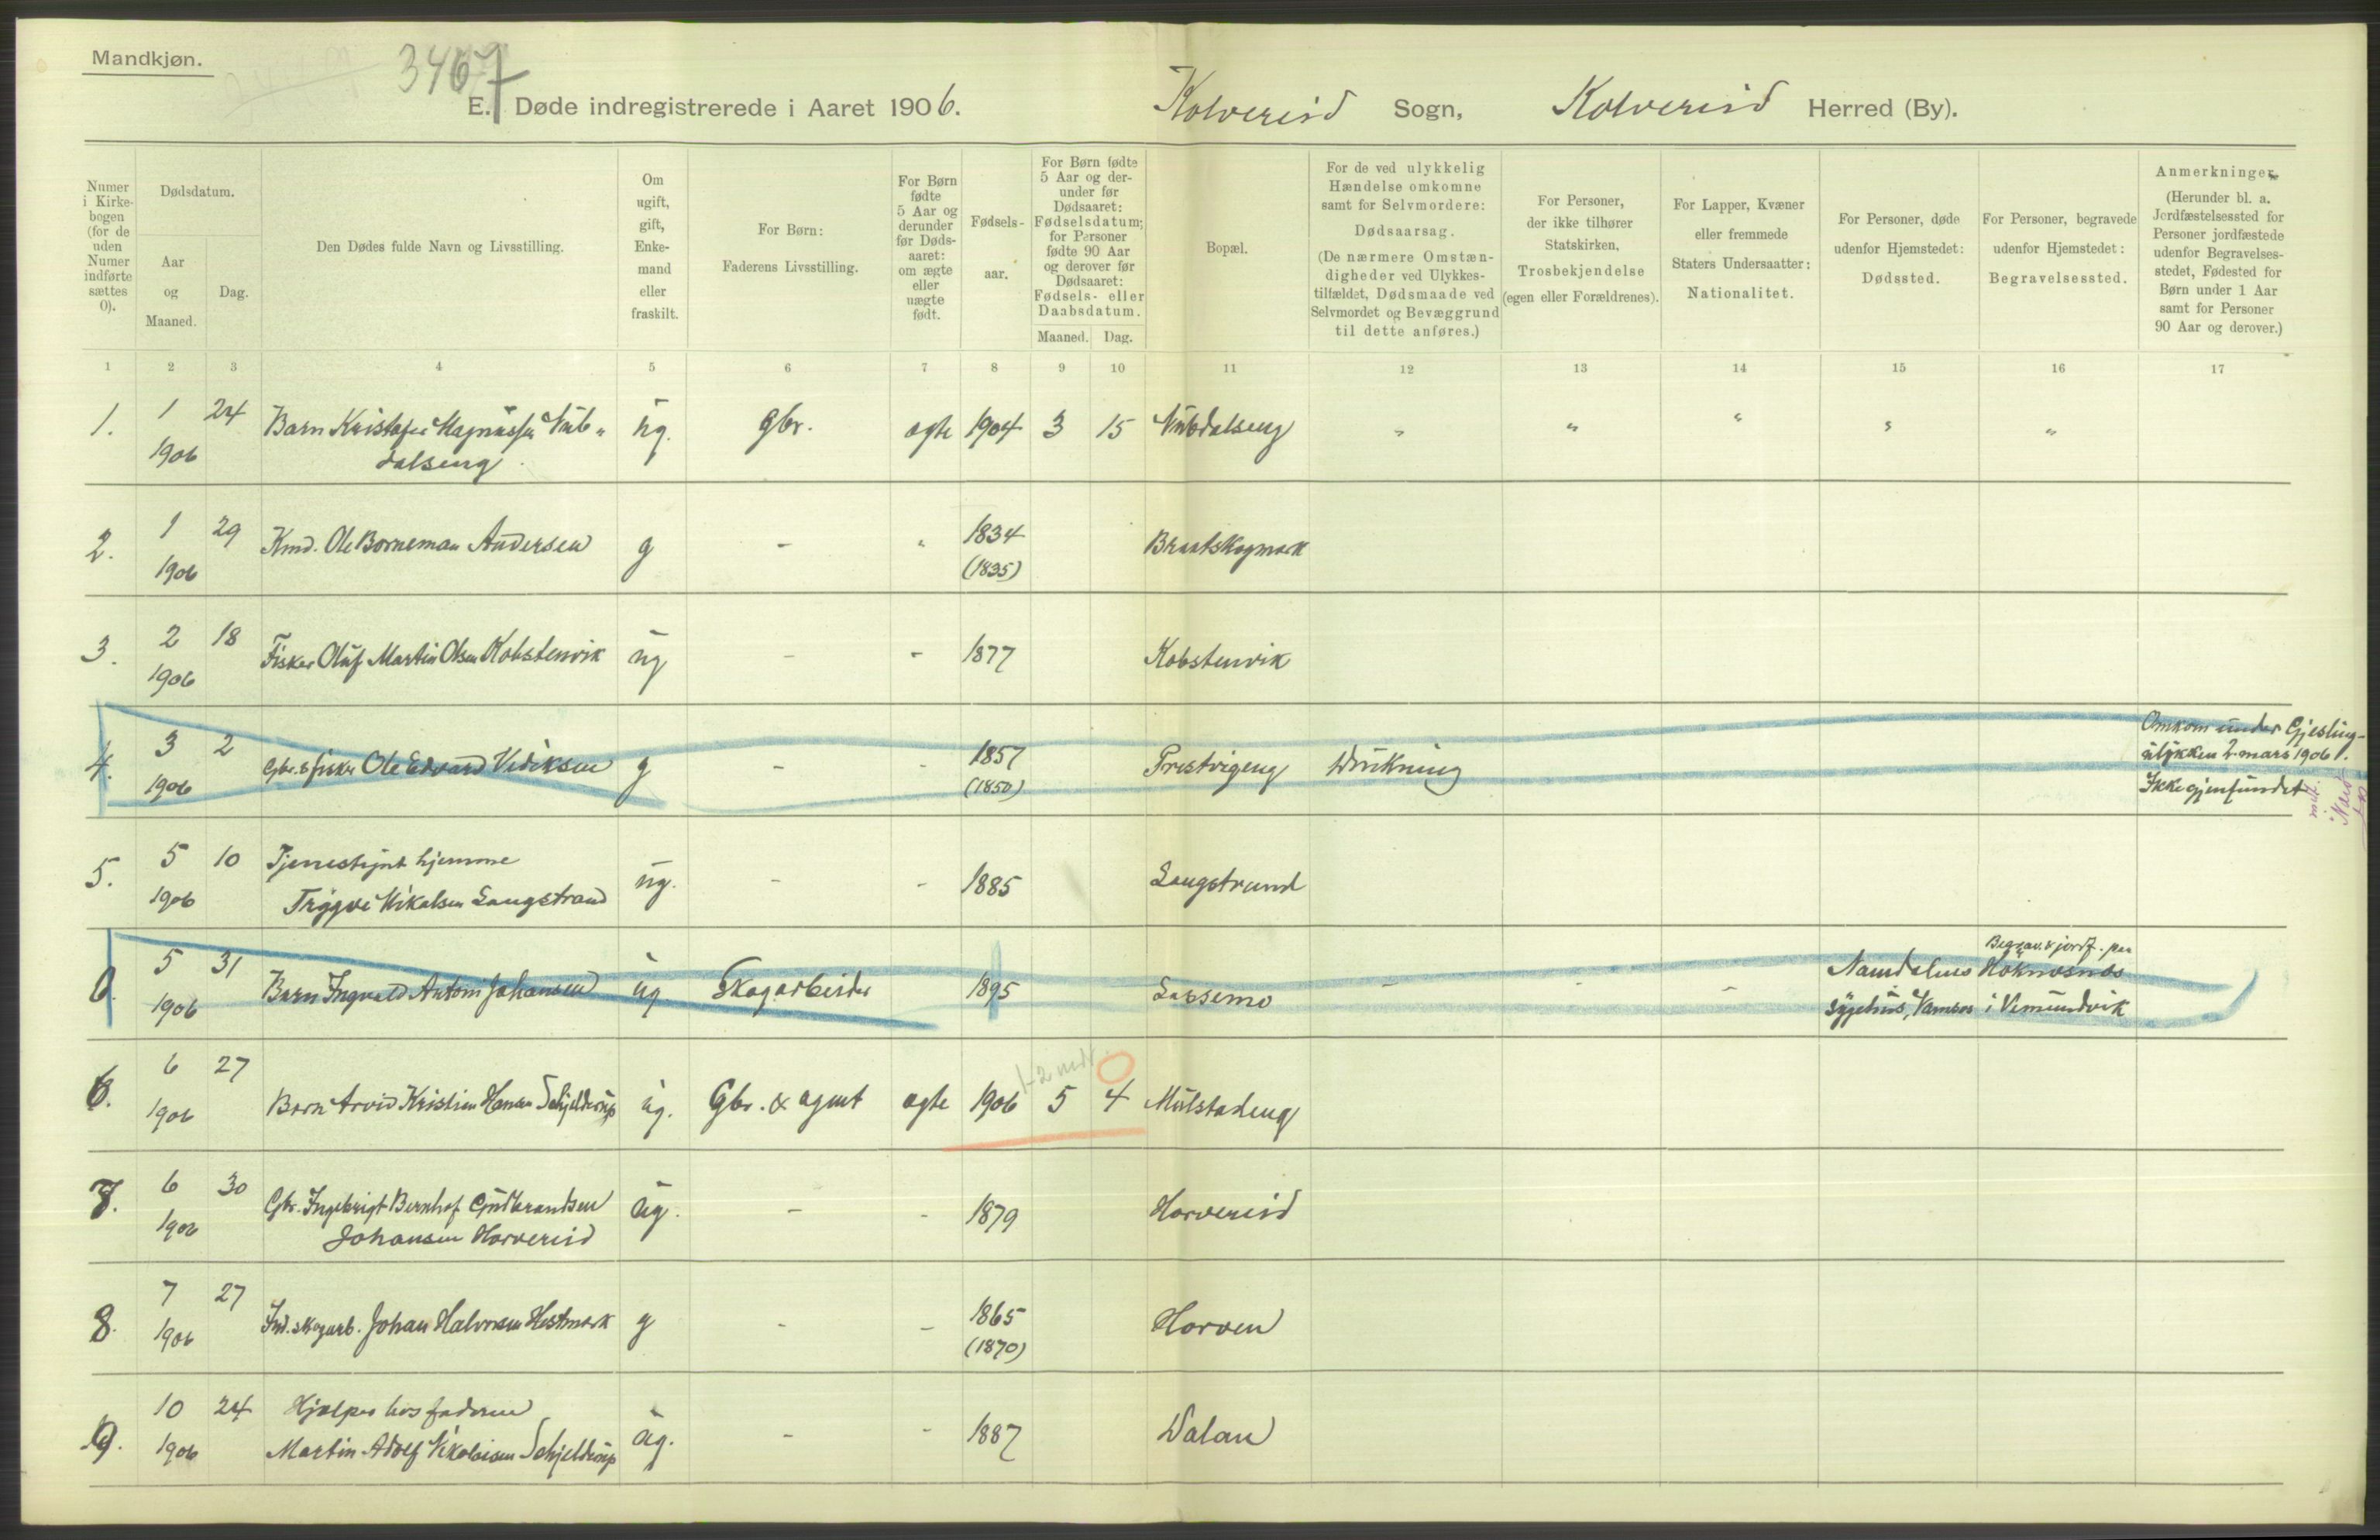 Mandkjøn.
3467
E. Døde indregistrerede i Aaret 1906. Kolvereid Sogn, Kolvereid Herred (By).
Numer i Kirkebogen (for de uden Numer indførte sættes 0).
Dødsdatum.
Aar og Maaned.
Dag.
Den Dødes fulde Navn og Livsstilling.
Om ugift, gift, Enkemand eller fraskilt.
For Børn: Faderens Livsstilling.
For Børn fødte 5 Aar og derunder før Dødsaaret: om ægte eller uægte født.
Fødselsaar.
For Børn fødte 5 Aar og derunder før Dødsaaret: Fødselsdatum; for Personer fødte 90 Aar og derover før Dødsaaret: Fødsels- eller Daabsdatum.
Maaned. Dag.
Bopæl.
For de ved ulykkelig Hændelse omkomne samt for Selvmordere: Dødsaarsag. (De nærmere Omstændigheder ved Ulykkestilfældet, Dødsmaade ved Selvmordet og Bevæggrund til dette anføres.)
For Personer, der ikke tilhører Statskirken, Trosbekjendelse (egen eller Forældrenes).
For Lapper, Kvæner eller fremmede Staters Undersaatter: Nationalitet.
For Personer, døde udenfor Hjemstedet: Dødssted.
For Personer, begravede udenfor Hjemstedet: Begravelsessted.
Anmerkninger. (Herunder bl. a. Jordfæstelsessted for Personer jordfæstede udenfor Begravelsesstedet, Fødested for Børn under 1 Aar samt for Personer 90 Aar og derover.)
1 2 3 4 5 6 7 8 9 10 11 12 13 14 15 16 17
1. 1 24 Barn Kristofer Magnussen Nub„ ug. gbr. ægte 1904 3 15 Nubdalseng „ „ „ „ „
1906 dalseng.
2. 1 29 Kmd. Ole Borneman Andersen g - „ 1834 Brantskogmark
1906 (1835)
3. 2 18 Fisker Oluf Martin Olsen Kobstenvik ug - - 1877 Kobstenvik
1906
4. 3 2 Gbr. & fisker Ole Edvard Vediksen g - - 1857 Prestvigeng Drukning Omkom under Gjesling-
ulykken 2. mars 1906.
1906 (1850) Ikke gjenfundet
5. 5 10 Tjenestgut hjemme ug. - - 1885 Langstrand
1906 Trygve Nikolsen Langstrand
6. 5 31 Barn Ingvald Anton Johansen ug Skogarbeider 1895 Lassemo - - - Namdalens Begrav. & jordf. paa
Høknesnes
1906 Sygehus, Namsos i Vemundvik
6. 6 27 Barn Arvid Kristian Hansen Schjelderup ug. Gbr. & agent ægte 1906 5 4 Mulstadeng
1906 1-2 mdr.
7. 6 30 Gbr. Ingebrigt Bernhof Gudbrandsen ug. - - 1879 Horvereid
1906 Johansen Horvereid
8. 7 27 Ind. skogarb. Johan Halvorsen Hestmark g - - 1865 Horven
1906 (1870)
9. 10 24 Hjælper hos faderen ug. - - 1887 Dalan
1906 Martin Adolf Nikolaisen Schjelderup